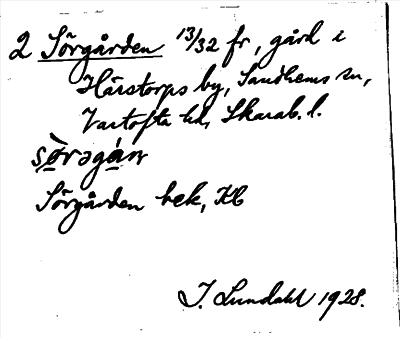 2 Sörgården 13/32 fr, gård i
Härstorps by, Sandhems sn,
Vartofta hd, Skarab. l.
sö̀rəgán
Sörgården bek, Kb
I. Lundahl 1928.